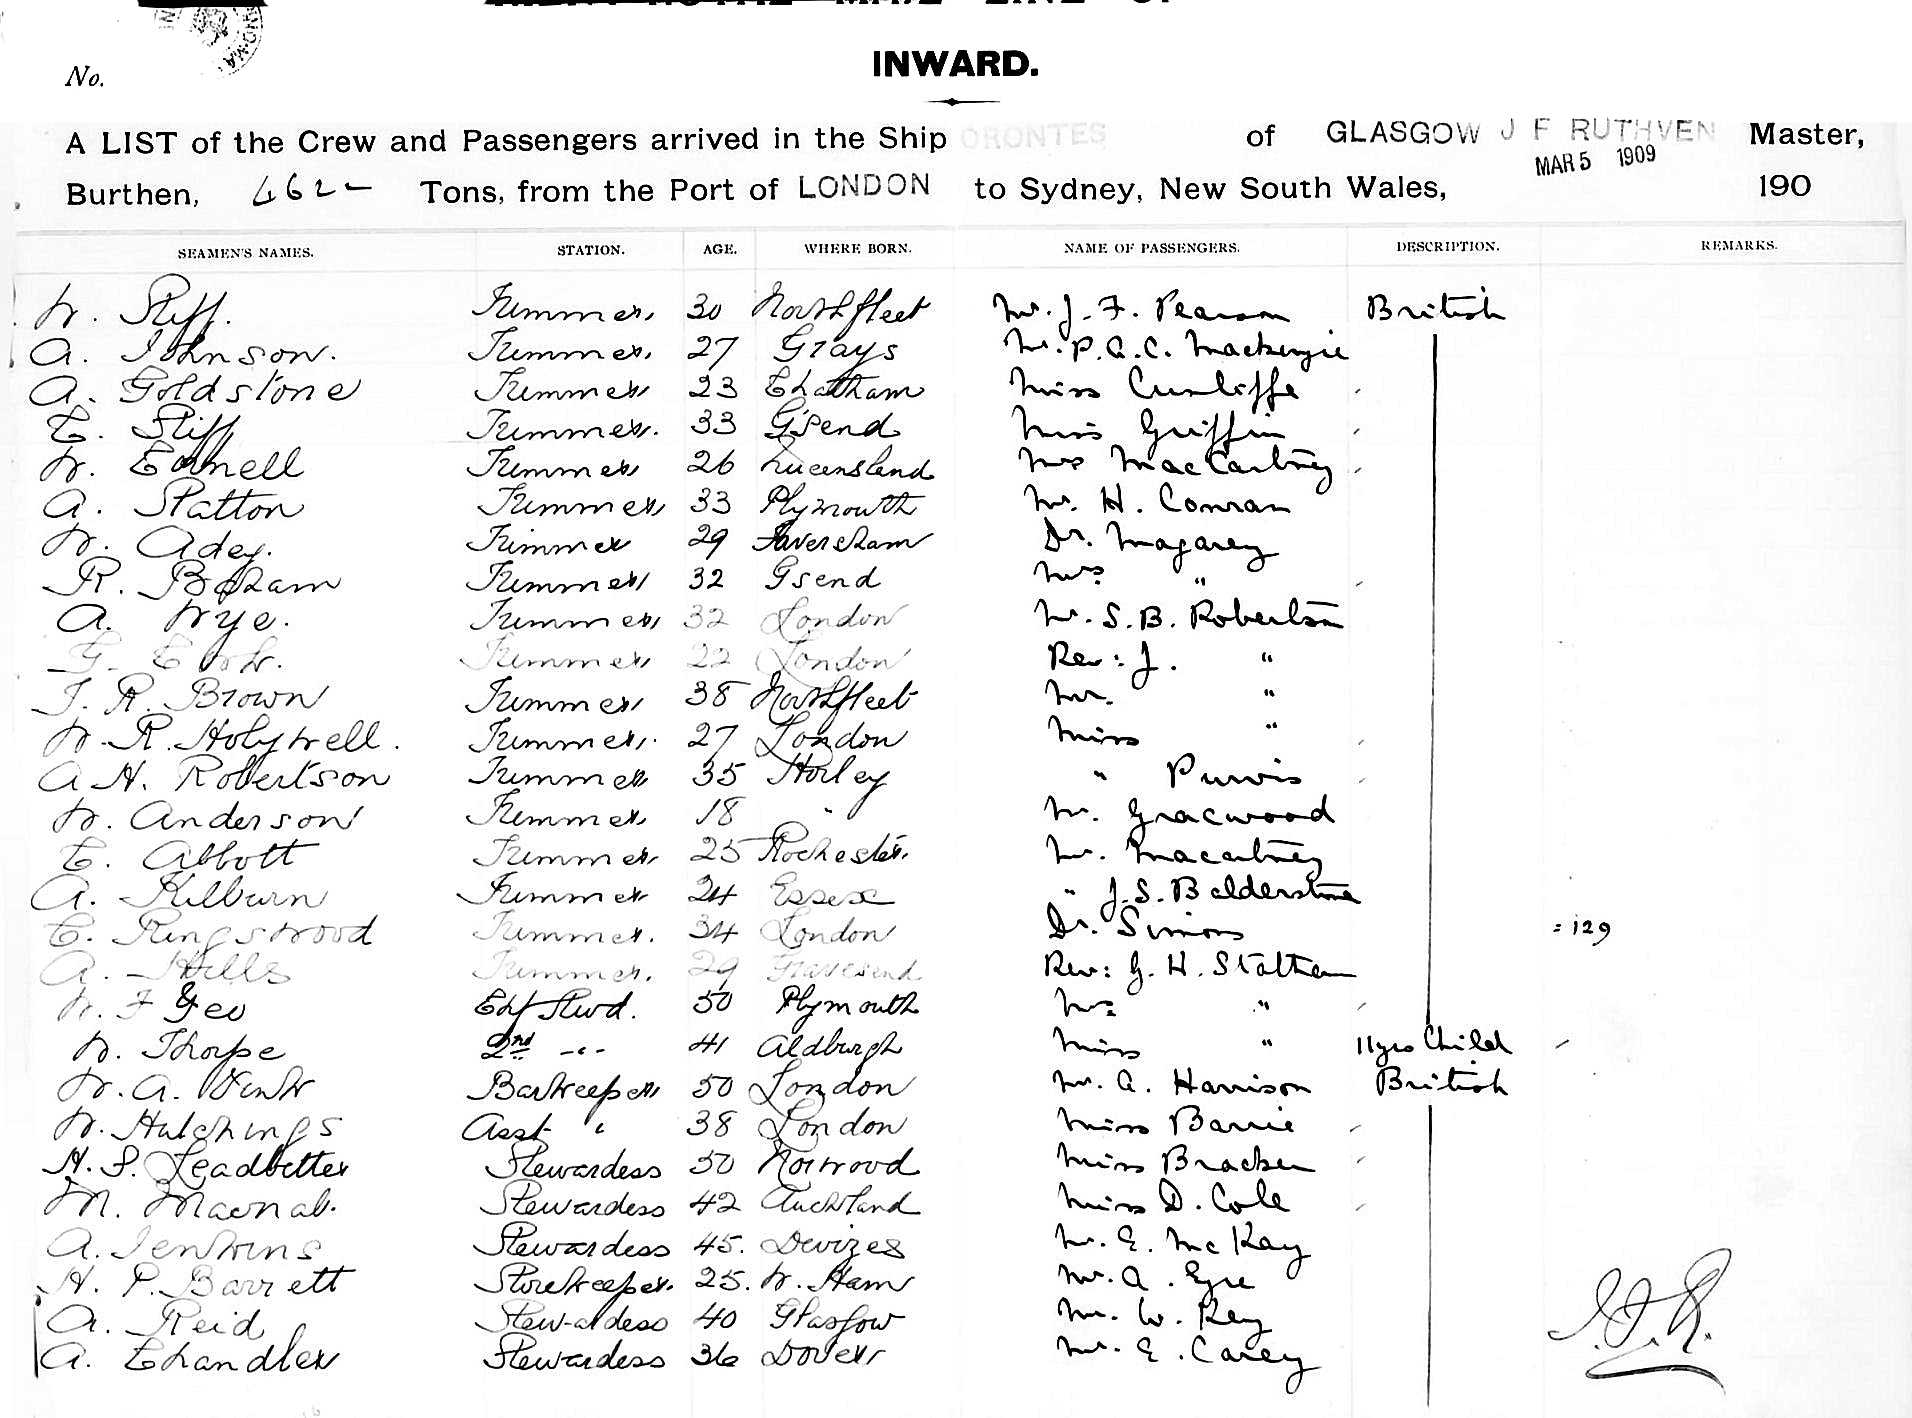 No.
INWARD.
A LIST of the Crew and Passengers arrived in the Ship ORONTES of GLASGOW J F RUTHVEN Master,
MAR 5 1909
Burthen, 4622 Tons, from the Port of LONDON to Sydney, New South Wales, 190
SEAMEN'S NAMES. STATION. AGE. WHERE BORN. NAME OF PASSENGERS. DESCRIPTION. REMARKS.
W. Stiff. Trimmer. 30 Northfleet Mr. J. F. Pearson British
A. Johnson. Trimmer. 27 Grays Mr. P. A. C. Mackenzie
A. Goldstone Trimmer 23 Chatham Miss Cunliffe
C. Stiff Trimmer. 33 G'send Miss Griffin
W. Trimmer 26 Queensland Mrs MacCartney
A. Statton Trimmer 33 Plymouth Mr. H. Conran
W. Adey. Trimmer 29 Faversham Dr. Magarey
R. Trimmer 32 Gsend Mrs "
A. Wye. Trimmer 32 London Mr. S. B. Robertson
G. Trimmer 22 London Rev: J. "
T. R. Brown Trimmer 38 Northfleet Mr. "
W. R. Holywell. Trimmer. 27 London Miss "
A H. Robertson Trimmer 35 Horley " Purvis
W. Anderson Trimmer 18 " Mr. Gracwood
C. Abbott Trimmer 25 Rochester. Mr. Macartney
A. Kilburn Trimmer 24 Essex " J. S. Balderstone
C. Kingswood Trimmer. 34 London Dr. Simons = 129
A. Hills Trimmer. 29 Gravesend Rev: G. H. Statham
W. F Geo Chf Stwd. 50 Plymouth Mrs "
W. Thorpe 2nd -"- 41 Aldburgh Miss " 11yrs Child
W. A. Barkeeper 50 London Mr. A. Harrison British
W. Hutchings Asst " 38 London Miss Barrie
H. S. Leadbetter Stewardess 50 Norwood Miss Bracken
M. Macnab. Stewardess 42 Auckland Miss D. Cole
A. Jenkins Stewardess 45. Devizes Mr. E. McKay
H. P. Barrett Storekeeper. 25. W. Ham Mr. A. Eyre
A. Reid Stewardess 40 Glasgow Mr. W. Key
A. Chandler Stewardess 36 Dover Mr. E. Carey
J.F.R.